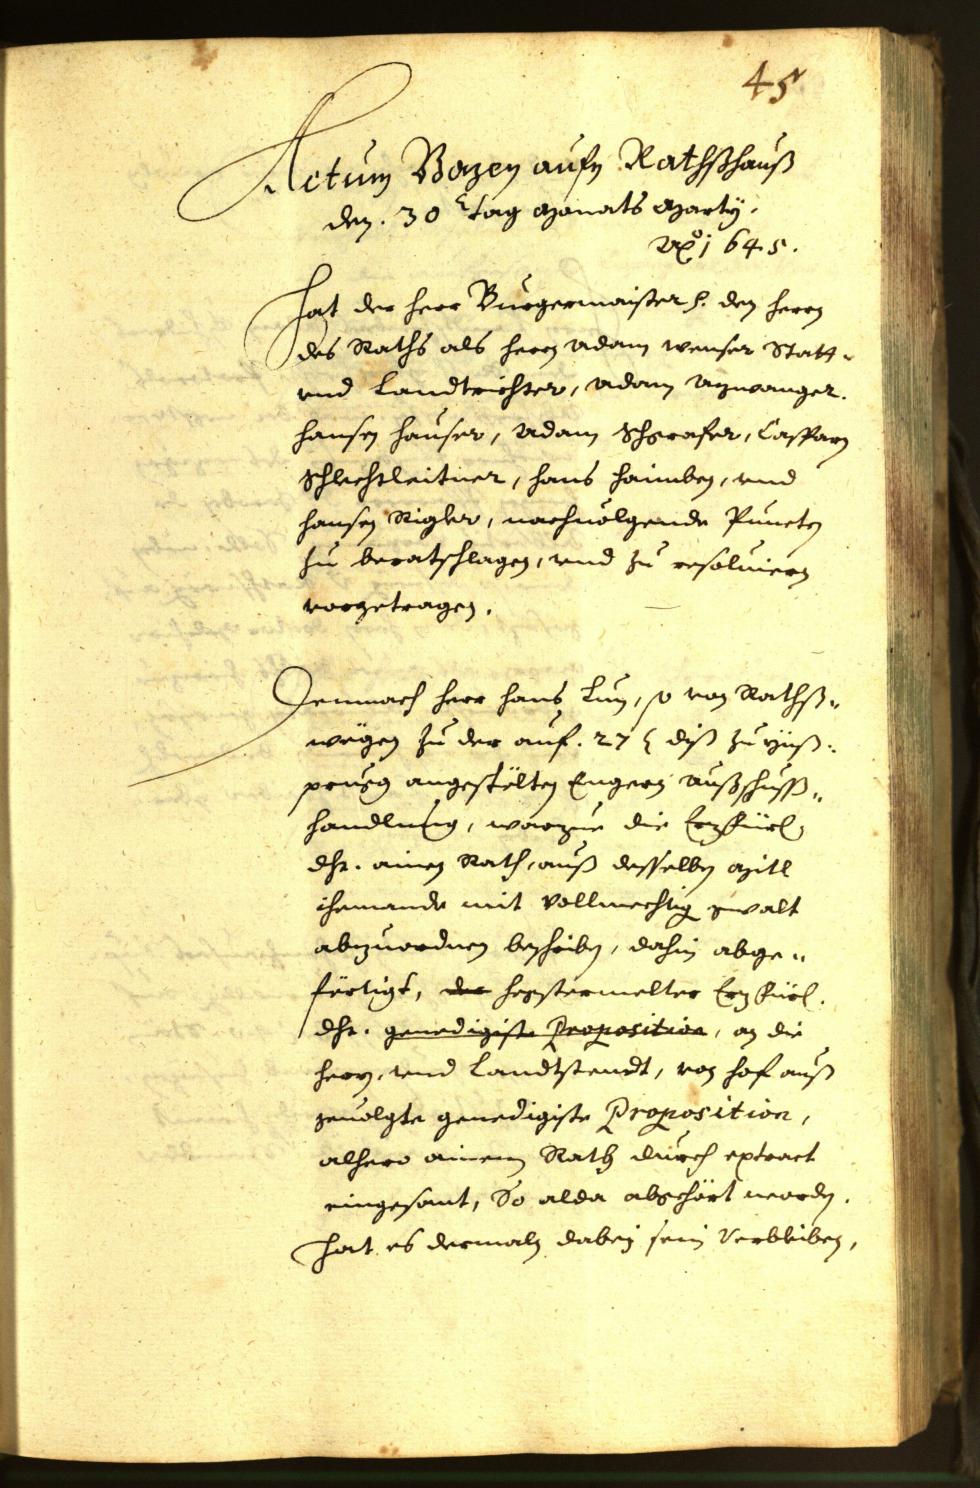 45
Actum Bozen aufm Rathßhauß
den. 30 tag Monats Marty.
Ao 1645.
Hat der herr Burgermaister h. den herrn
des Raths als herrn Adam Wenser Statt-
vnd Landtrichter, Adam
Hansen Hauser, Adam Schgrafer, Casparn
Schlechtleitner, Hans Haimben, vnd
Hansen Rigler, nachuolgende Puncten
zu beratschlagen, vnd zu resoluiern
vorgetragen.
Demnach herr Hans Lun, so von Rathß-
wegen zu der auf. 27 diß zu Ynß-
prugg angestölten Engern Außschuss-
handlung, warzue die Erzfürl.
Dht. ainen Rath, auß desselben Mitl
iemande mit vollmechtig gwalt
abzuordnen beschriben, dahin abge-
förtigt, der hegstermelter Erzfürl.
Dht. genedigiste Proposition, an die
herrn, vnd Landtstendt, von hof auß
geuolgte genedigiste Proposition,
alhero ainem Rath durch extract
eingesant, So alda abgehört worden.
Hat es dermaln dabey sein Verbleiben,